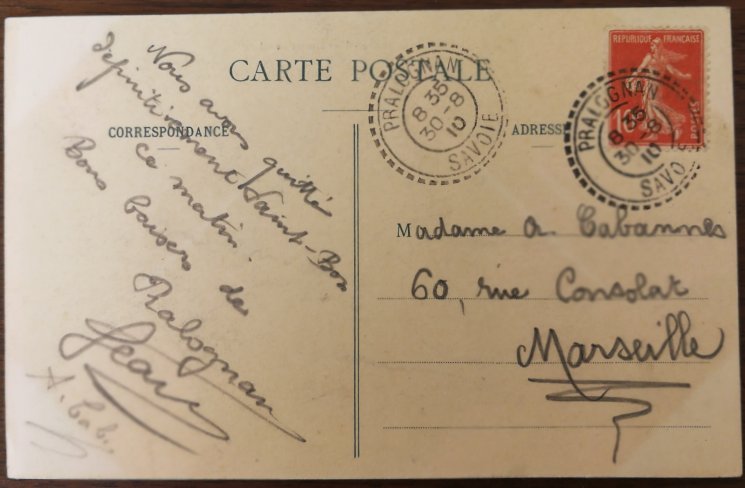 CARTE POSTALE
CORRESPONDANCE
ADRESSE
Nous avons quitté
définitivement Saint-Bon
ce matin.
Bons baisers de
Pralognan
Jean
A. Cab.
PRALOGNAN
8 35
30 - 8
10
SAVOIE
REPUBLIQUE FRANÇAISE
10
POSTES
PRALOGNAN
8 35
30 - 8
10
SAVOIE
Madame A. Cabannes
60, rue Consolat
Marseille